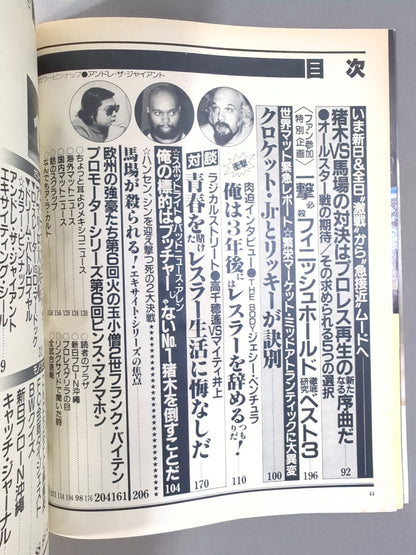 目次
いま新日&全日“激戦”から“急接近”ムードへ
猪木VS馬場の対決はプロレス再生の新たなる序曲だ
●オールスター戦の期待／その求められる5つの選択
92
ファン参加特別企画
一撃必殺フィニッシュホールド徹底研究ベスト3
196
世界マット緊急レポート
☆繁栄マーケット・ミッドアトランティックに大異変
クロケット・Jrとリッキーが訣別
100
衝撃
肉迫インタビュー●THE BODYジェシー・ベンチュラ
俺は3年後にはレスラーを辞めるつもりだ!
110
対談
ラジカルストリート●高千穂遥VSマイティ井上
青春を賭けたレスラー生活に悔なしだ
170
☆スポットライト●バッドニュース・アレン
俺の標的はブッチャーじゃないNo.1猪木を倒すことだ
104
☆ハンセン／シンを迎え撃つ死の2大決戦
馬場が殺られる!
エキサイト・シリーズの焦点
206
欧州の強豪たち第6回火の玉小僧2世フランク・バイテン
161
プロモーターシリーズ第6回ビンス・マクマホン
204
☆ちょっと耳よりのメキシコニュース
☆海外マットニュース
☆国内マットニュース
☆話のスクラップ
☆なんでもア・ラ・カルト
☆読者のプラザ
☆新日プローN沖縄
☆プロレスゲリラの目
☆リングサイドで聞いた時
☆全試合速報
カラーピンナップ●アンドレ・ザ・ジャイアント
44
新日プローN沖縄
キャッチ・ジャーナル
エキサイティング